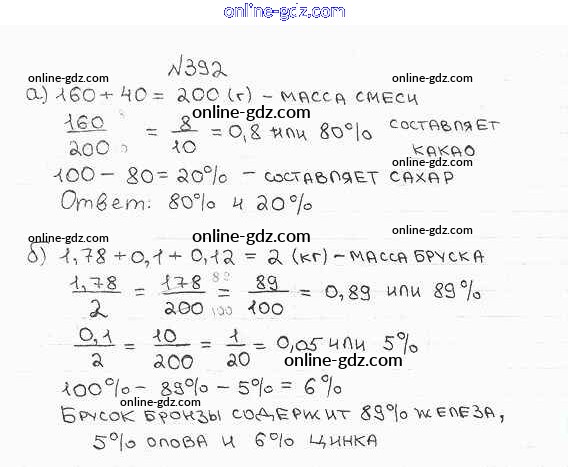 online-gdz.com
№392
online-gdz.com online-gdz.com
а) 160 + 40 = 200 (г) - МАССА СМЕСИ
online-gdz.com
160/200 = 8/10 = 0,8 или 80% СОСТАВЛЯЕТ
КАКАО
online-gdz.com
100 - 80 = 20% - СОСТАВЛЯЕТ САХАР
Ответ: 80% и 20%
online-gdz.com online-gdz.com online-gdz.com
б) 1,78 + 0,1 + 0,12 = 2 (кг) - МАССА БРУСКА
1,78/2 = 178/200 = 89/100 = 0,89 или 89%
0,1/2 = 10/200 = 1/20 = 0,05 или 5%
online-gdz.com
100% - 89% - 5% = 6%
online-gdz.com online-gdz.com online-gdz.com
БРУСОК БРОНЗЫ СОДЕРЖИТ 89% ЖЕЛЕЗА,
5% ОЛОВА И 6% ЦИНКА